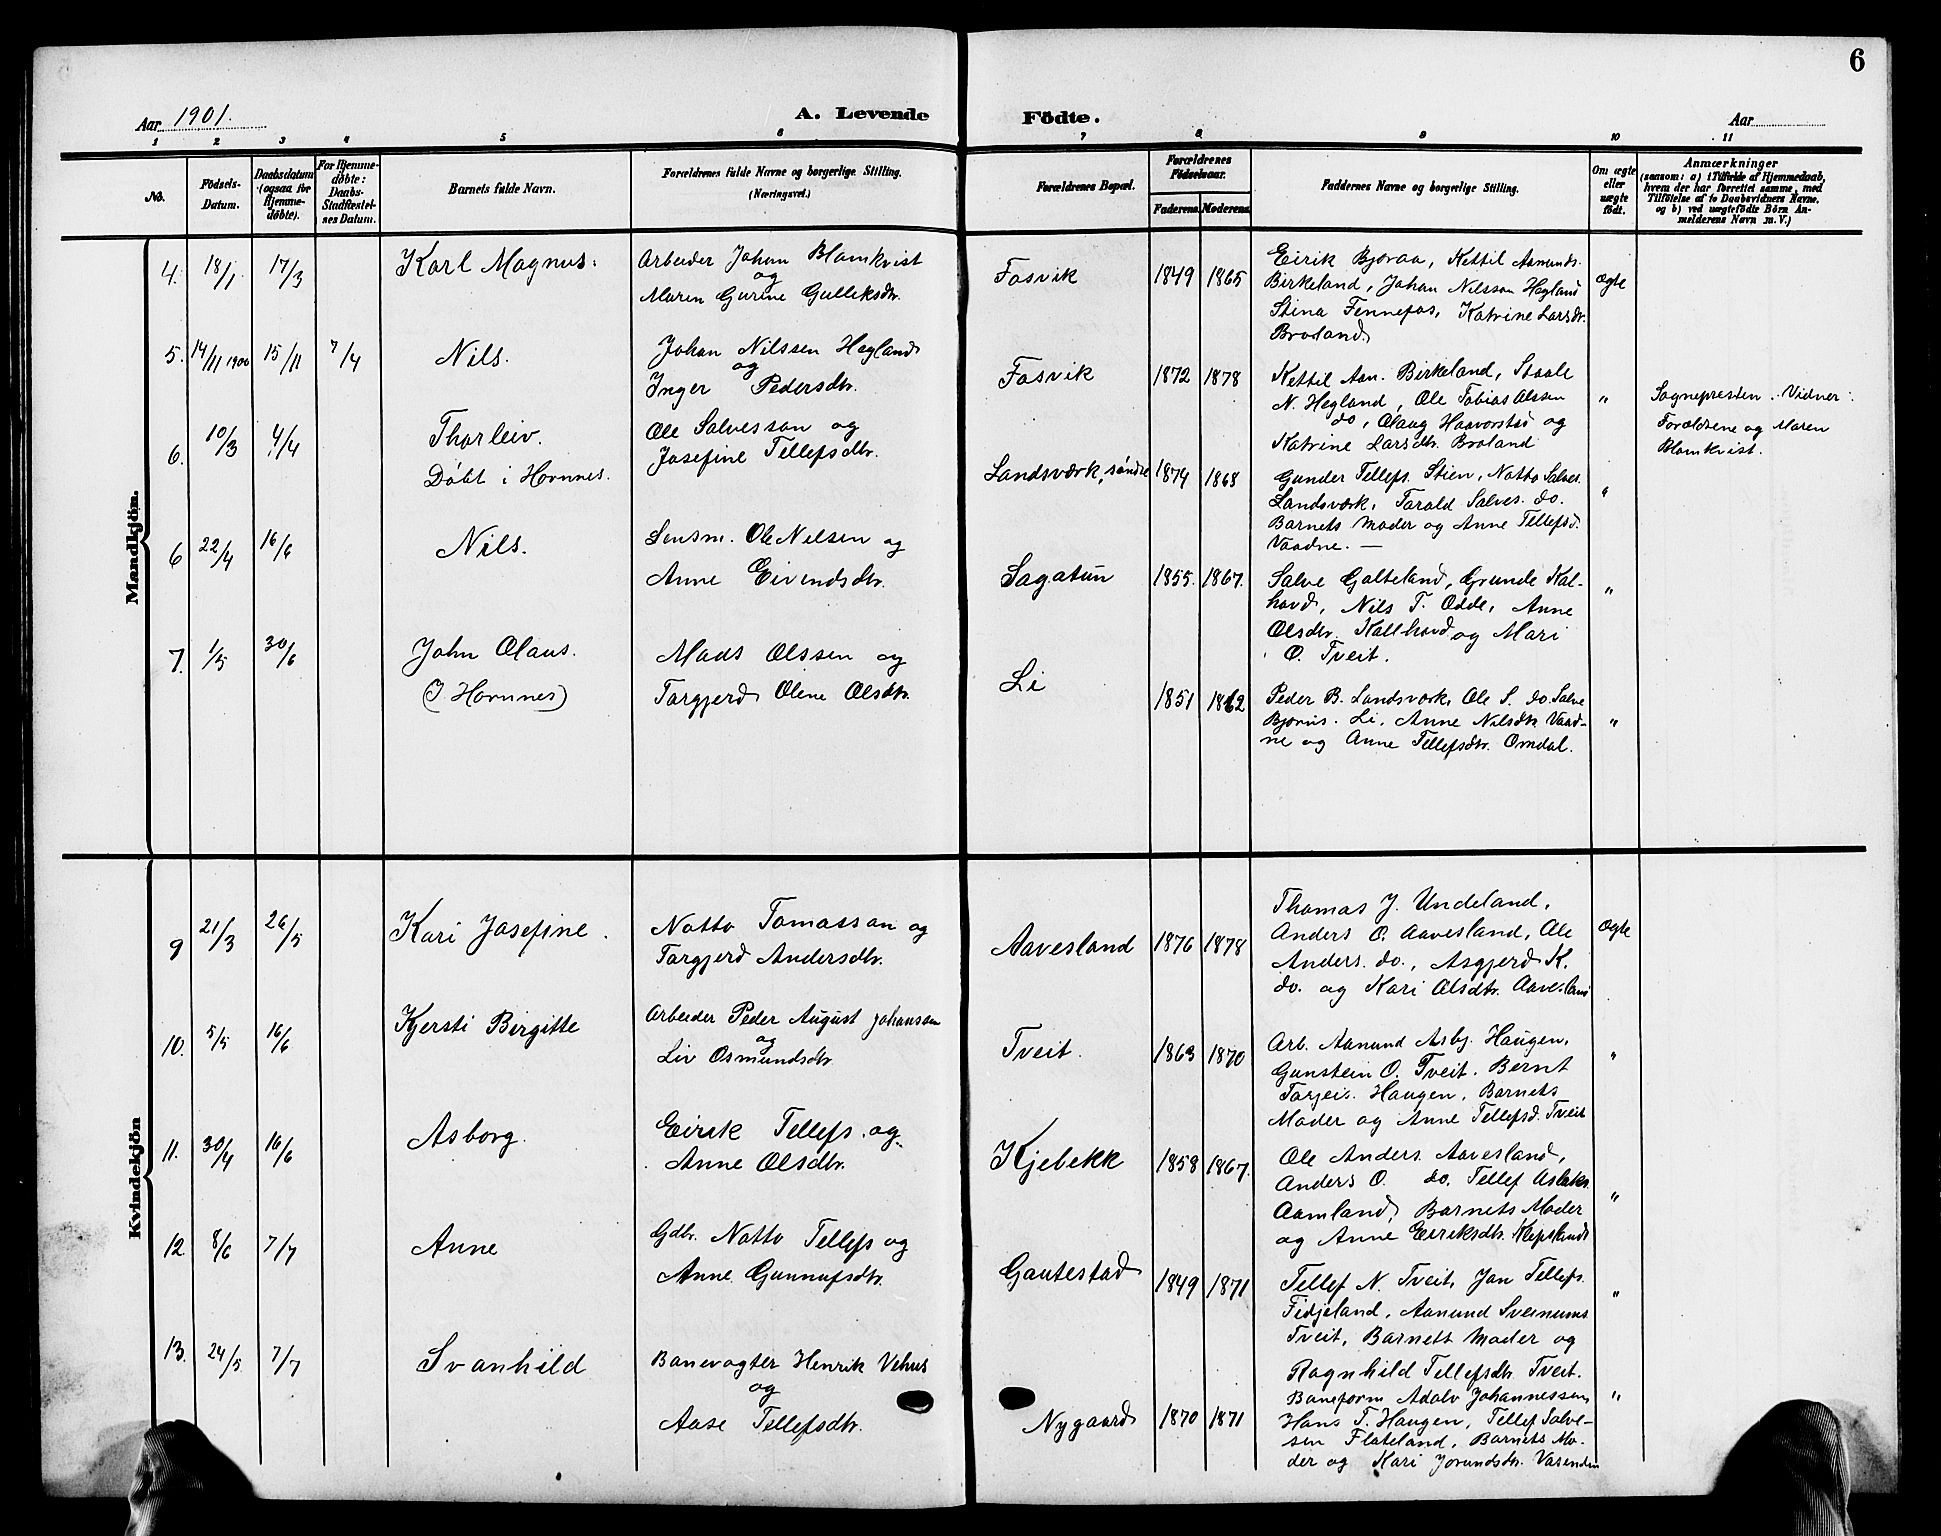 6
Aar 1901.
A. Levende
Födte.
Aar
1 2 3 4 5 6 7 8 9 10 11
No.
Födsels-
Datum.
Daabsdatum
(ogsaa for
Hjemme-
döbte).
For Hjemme-
döbte:
Daabs-
Stadfæstel-
ses Datum.
Barnets fulde Navn.
Forældrenes fulde Navne og borgerlige Stilling.
(Næringsvei.)
Forældrenes Bopæl.
Forældrenes
Födselsaar.
Faderens. Moderens.
Faddernes Navne og borgerlige Stilling.
Om ægte
eller
uægte
födt.
Anmærkninger
(saasom: a) i Tilfælde af Hjemmedaab,
hvem der har forrettet samme, med
Tilföielse af to Daabsvidners Navne,
og b) ved uægtefödte Börn An-
melderens Navn m. V.)
Mandkjön.
4. 18/1 17/3 Karl Magnus.
Arbeider Johan Blomkvist
og
Maren Gurine Gulleksdtr.
Fosvik 1849 1865
Eirik Bjoraa, Kettil Asmunds.
Birkeland, Johan Nilsson Hegland
Stina Fennefos, Katrine Larsdtr.
Broland.
Ægte
5. 14/11 1900 15/11 7/4 Nils.
Johan Nilssen Hegland
og
Inger Pedersdtr.
Fosvik 1872 1878
Kettil Aan. Birkeland, Staale
N. Hegland, Ole Tobias Olssen
do, Olaug Haavorstad og
Katrine Larsdtr. Broland
"
Sognepresten. Vidner:
Forældrene og Maren
Blomkvist.
6. 10/3 4/4 Thorleiv.
Döbt i Hornnes.
Ole Salvesson og
Josefine Tellefsdtr.
Landsværk, söndre 1874 1868
Gunder Tellefs. Stien, Notto Salves.
Landsværk, Torald Salves. do.
Barnets Moder og Anne Tellefsd.
Vaadne. —
"
6 22/4 16/6 Nils.
Lensm. Ole Nilsen og
Anne Eivendsdtr.
Sagatun 1855. 1867.
Salve Galteland, Grunde Kal-
hovd, Nils T. Odde, Anne
Olsdtr. Kallhovd og Mari
O. Tveit.
"
7. 1/5 30/6 John Olaus.
(I Hornnes)
Mads Olssen og
Torgjerd Olene Olsdtr.
Li 1851 1862
Peder B. Landsværk, Ole S. do. Salve
Bjorus. Li, Anne Nilsdtr. Vaad-
ne og Anne Tellefsdtr. Omdal.
"
Kvindekjön
9 21/3 26/5 Kari Josefine.
Notto Tomasson og
Torgjerd Andersdtr.
Aavesland 1876 1878
Thomas J. Undeland,
Anders O. Aavesland, Ole
Anders. do., Asgjerd K.
do. og Kari Olsdtr. Aavesland
Ægte
10. 5/5 16/6 Kjersti Birgitte
Arbeider Peder August Johanssen
og
Liv Osmundsdtr.
Tveit. 1863 1870
Arb. Aanund Asbj. Haugen,
Gunstein O. Tveit. Bernt
Torjeis. Haugen, Barnets
Moder og Anne Tellefsd. Tveit
"
11. 30/4 16/6 Asborg.
Eirik Tellefs. og
Anne Olsdtr.
Kjebekk 1858 1867.
Ole Anders. Aavesland,
Anders O. do. Tellef Aslaks.
Aamland, Barnets Moder
og Anne Eiriksdtr. Klepsland
"
12. 8/6 7/7 Anne
Gdbr. Notto Tellefs og
Anne Gunnufsdtr.
Gautestad 1849 1871
Tellef N. Tveit, Jon Tellefs.
Fidjeland, Aanund Sveinums.
Tveit, Barnets Moder og
Ragnhild Tellefsdtr. Tveit.
"
13. 24/5. 7/7 Svanhild
Banevogter Henrik Vehus
og
Aase Tellefsdtr.
Nygaard 1870 1871
Baneform. Adolv Johannessen
Hans T. Haugen, Tellef Salve-
sen Flateland, Barnets Mo-
der og Kari Jorundsdtr. Vasenden
"